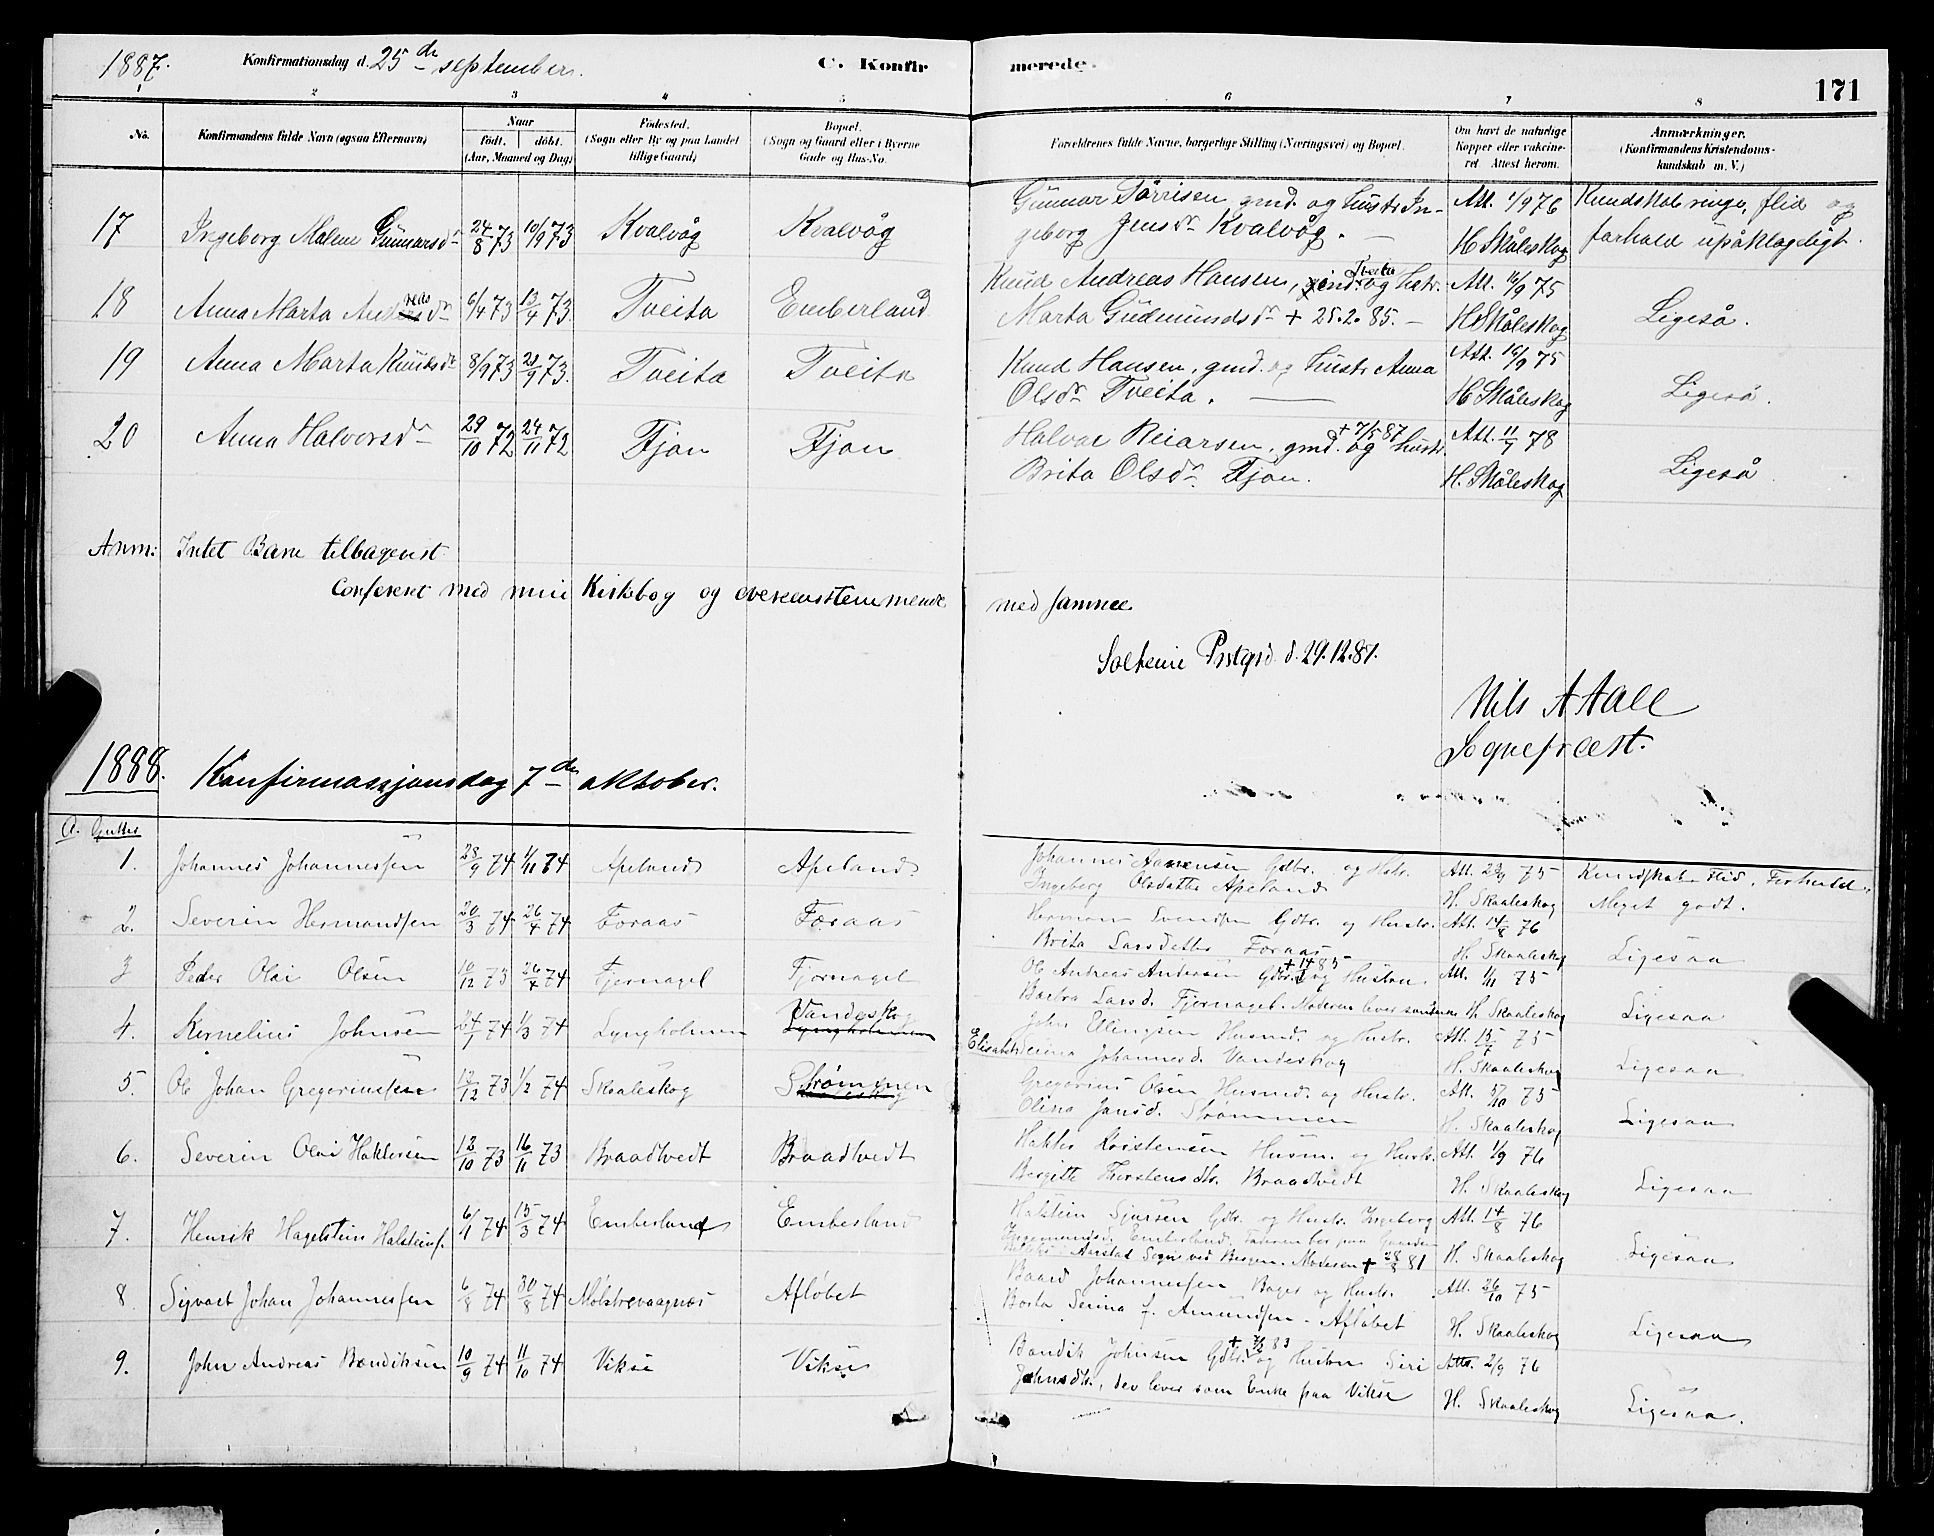 1887. Konfirmationsdag d. 25de september. C. Konfir merede. 171
1 2 3 4 5 6 7 8
No. Konfirmandens fulde Navn (ogsaa Efternavn) Naar født. døbt. (Aar, Maaned og Dag) Fødested. (Sogn eller By og paa Landet tillige Gaard) Bopæl. (Sogn og Gaard eller i Byerne Gade og Hus-No. Forældrenes fulde Navne, borgerlige Stilling (Næringsvei) og Bopæl. Om havt de naturlige Kopper eller vakcineret. Attest herom. Anmærkninger. (Konfirmandens Kristendomskundskab m. V.)
17 Ingeborg Malene Gunnarsdr 24/8 73 10/9 73 Kvalvåg Kvalvåg Gunnar Tørrisen, gmd. og hustr. In-
geborg Jensdr Kvalvåg. Att. 1/9 76 H Skåleskog Kundskab ringe, flid og forhold upåklageligt.
18 Anna Marta Andersdr 6/4 73 13/4 73 Tveita Emberland Knud Andreas Hansen, gmd. Tveita og hstr.
Marta Gudmundsdr + 25.2.85. Att. 16/9 75 H Skåleskog Ligeså.
19 Anna Marta Knutsdr 8/9 73 21/9 73. Tveita Tveita Knud Hansen, gmd. og hustr. Anna
Olsdr Tveita. Att. 16/9 75 H Skåleskog Ligeså.
20 Anna Halvorsdr 29/10 72 24/11 72 Fjon Fjon Halvor Reiarsen, gmd. + 7/5 87 og hustr.
Brita Olsdr Fjon. Att. 11/7 78 H. Skåleskog Ligeså
Anm: Intet Barn tilbagevist
Conferert med min Kirkebog og overensstemmende med samme.
Solteim Prstgrd. d. 29.12.87.
Nils A Aall
Sogneprest.
1888. Konfirmassjonsdag 7de oktober.
a. Gutter
1. Johannes Johannessen 28/9 74 1/11 74 Apeland Apeland Johannes Gdbr. og Hstr.
Ingeborg Olsdatter Apeland Att. 75 H. Skaaleskog Kundskab Flid, Forhold Meget godt.
2. Severin Hermandsen 20/3 74 26/4 74 Foraas Foraas Herman Svendsen Gdbr. og Hustr.
Brita Larsdatter Foraas Att. 14/8 76 H. Skaaleskog Ligesaa
3 Peder Olai Olsen 10/12 73 26/4 74 Fjernagel Fjernagel Ole Andreas Andersen Gdbr. og Hustru
Larsd. Fjernagel. Moderen lever Att. 1/11 75 H. Skaaleskog Ligesaa
4. Kornelius Johnsen 24/1 74 1/3 74 Lyngholmen Vandeskog Lyngholmen John Ellingsen Husmd. og Hustr.
Elisabeth Serina Johannesd. Vandeskog Att. 75 H. Skaaleskog Ligesaa
5. Ole Johan Gregoriussen 12/12 73 1/2 74 Skaaleskog Strømmen Skaaleskog Gregorius Olsen Husmd. og Hustr.
Olina Jansd. Strømmen Att. 5/10 75 H. Skaaleskog Ligesaa
6. Severin Olai Haktersen 12/10 73 16/11 73 Braadtvedt Braadtvedt Hakter Torstensen Husm. og Hustr.
Bergitte Thorstensdtr. Braadtvedt Att. 1/9 76 H. Skaaleskog Ligesaa
7. Henrik Hagelstein Halsteins. 6/1 74 15/3 74 Emberland Emberland Halstein Sjursen Gdbr. og Hustr. Ingeborg
Ingemundsd. Emberland. Faderen bor paa Gaarden
Aarstad Sogn ved Bergen. Moderen + 28/8 81 Att. 14/8 76 H. Skaaleskog Ligesaa
8 Sigvart Johan Johannessen 6/8 74 30/8 74 Molstrevaagnæs Afløbet Baard Johannessen Bager og Hustr.
Serina f. Amundsen - Afløbet Att. 26/10 75 H. Skaaleskog Ligesaa
9. John Andreas Bendiksen 10/9 74 11/10 74 Vikse Vikse Bendik Johnsen Gdbr. og Hustru Siri
Johnsdtr., der lever som Enke paa Vikse Att. 2/9 76 H. Skaaleskog Ligesaa.